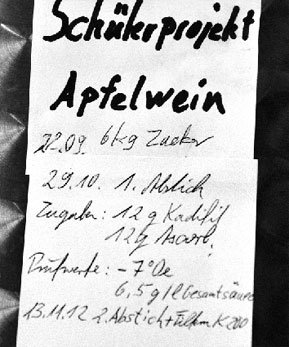 Schülerprojekt
Apfelwein
22.09. 6kg Zucker
29.10. 1. Abstich
Zugaben: 12g Kadifit
12g Ascorb.
Prüfwerte: -7°Oe
6,5g/l Gesamtsäure
13.11.12 2. Abstich + Filtern K200